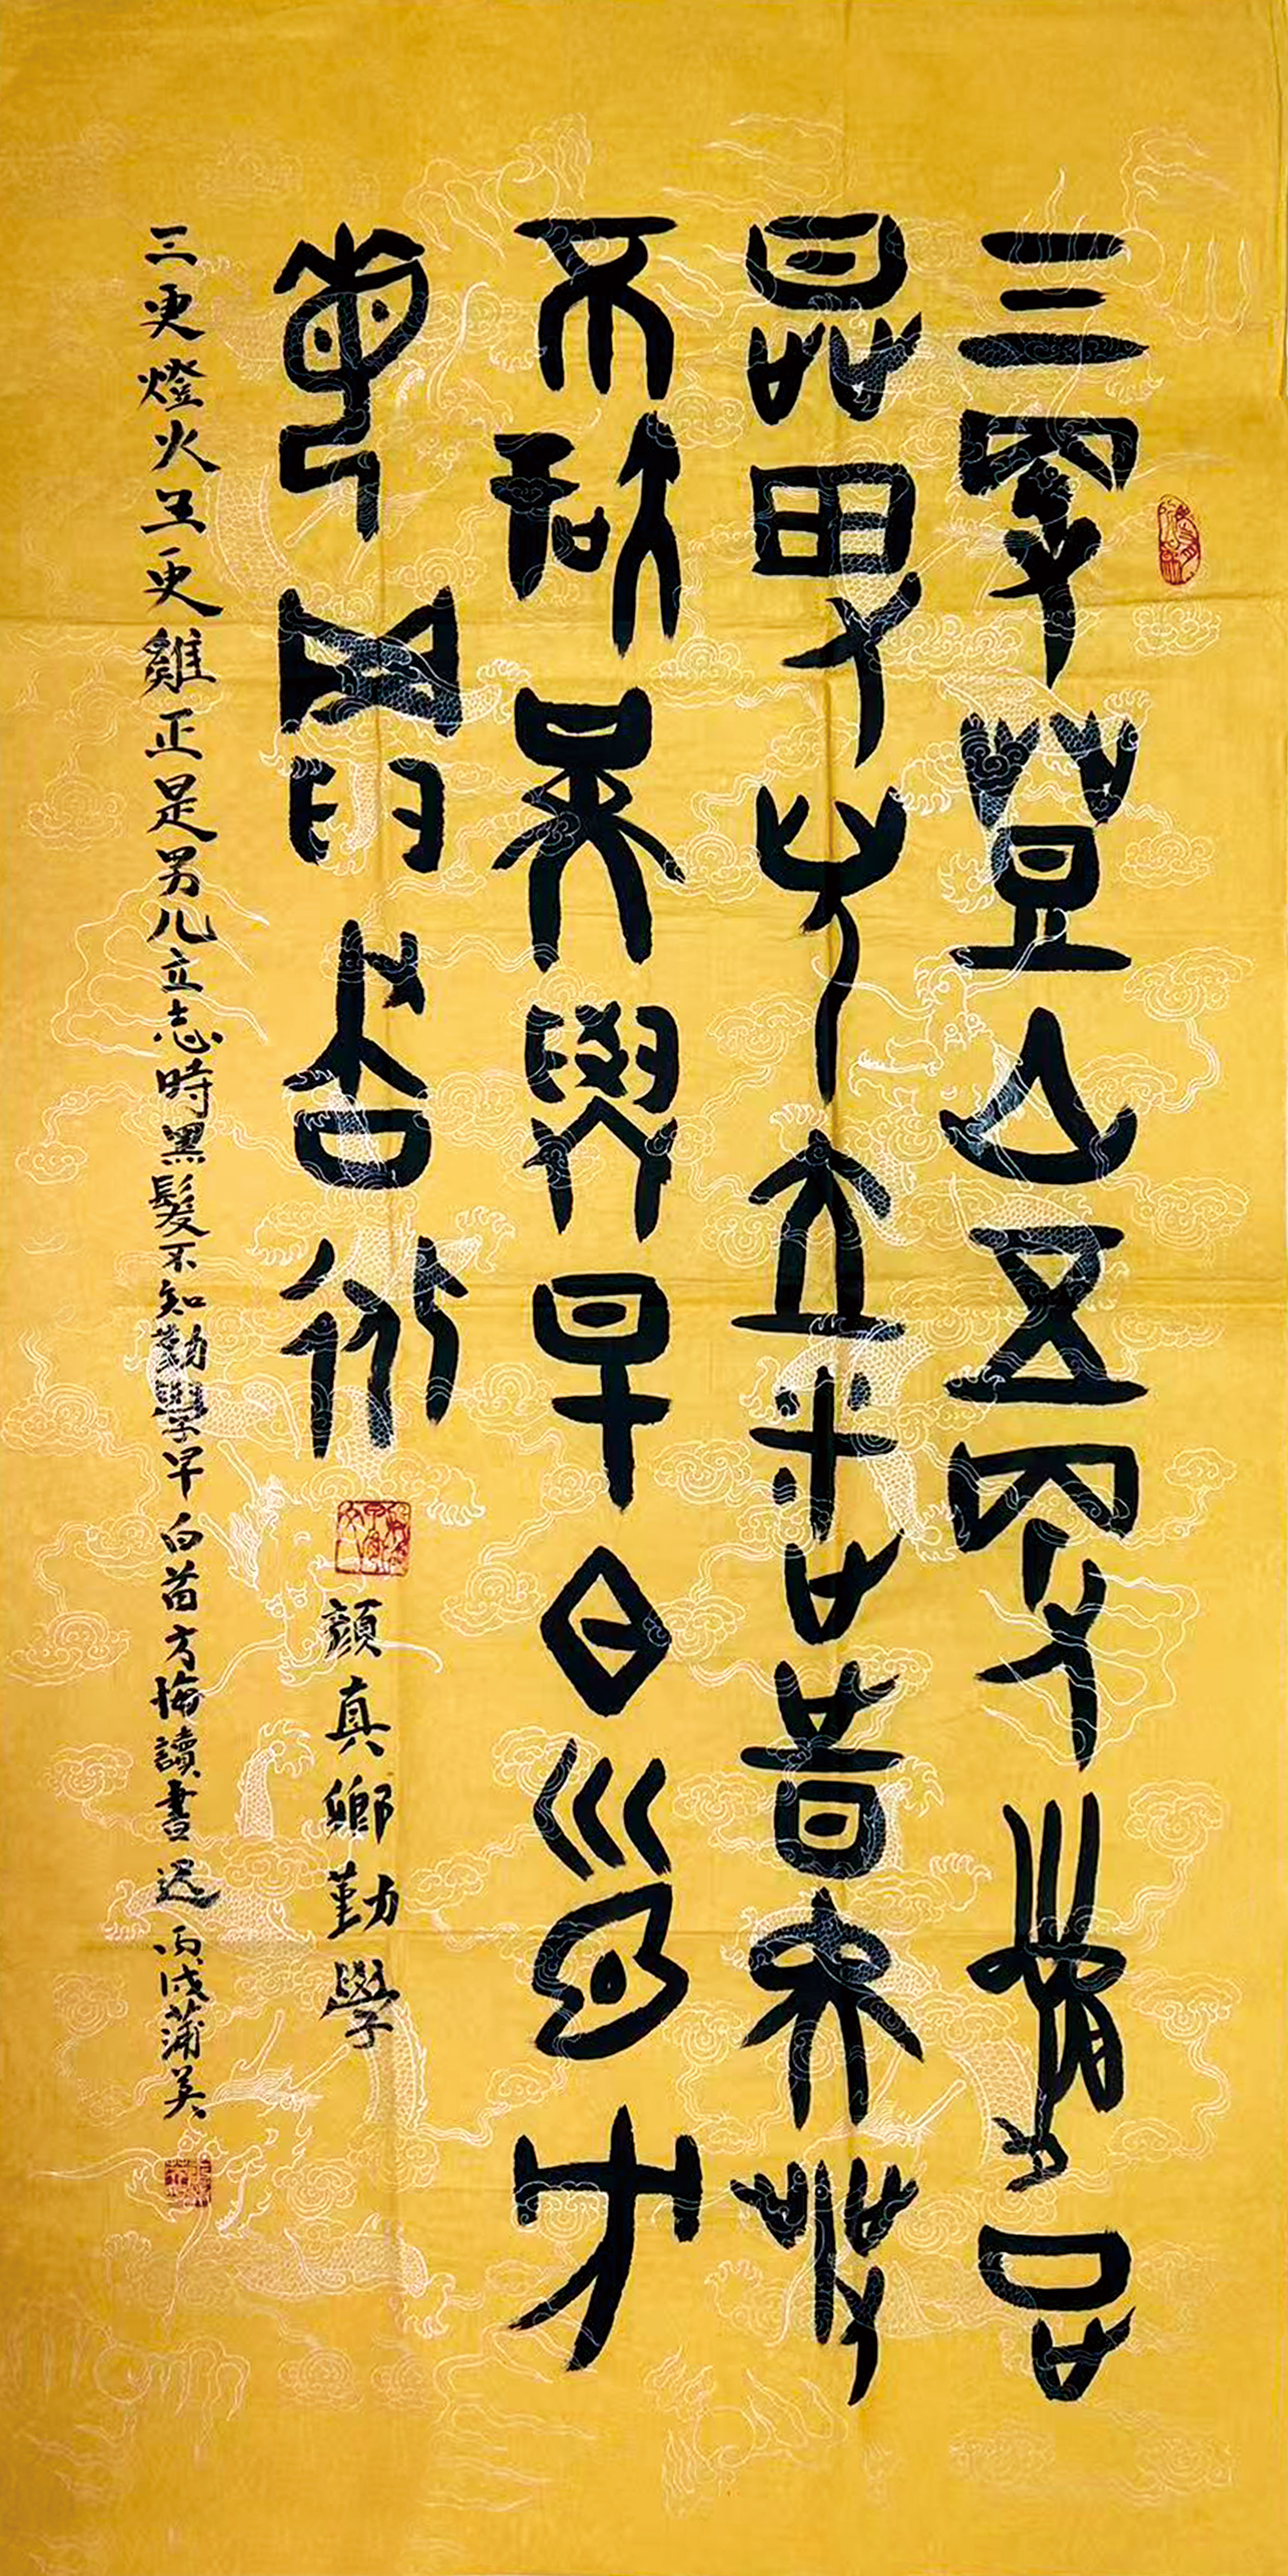 三更登火五更雞正
是男儿立志時黑髮
不知勤學早白首方
悔讀書遲
顏真卿勤學
三更燈火五更雞正是男儿立志時黑髮不知勤學早白首方悔讀書遲丙戌蒲英